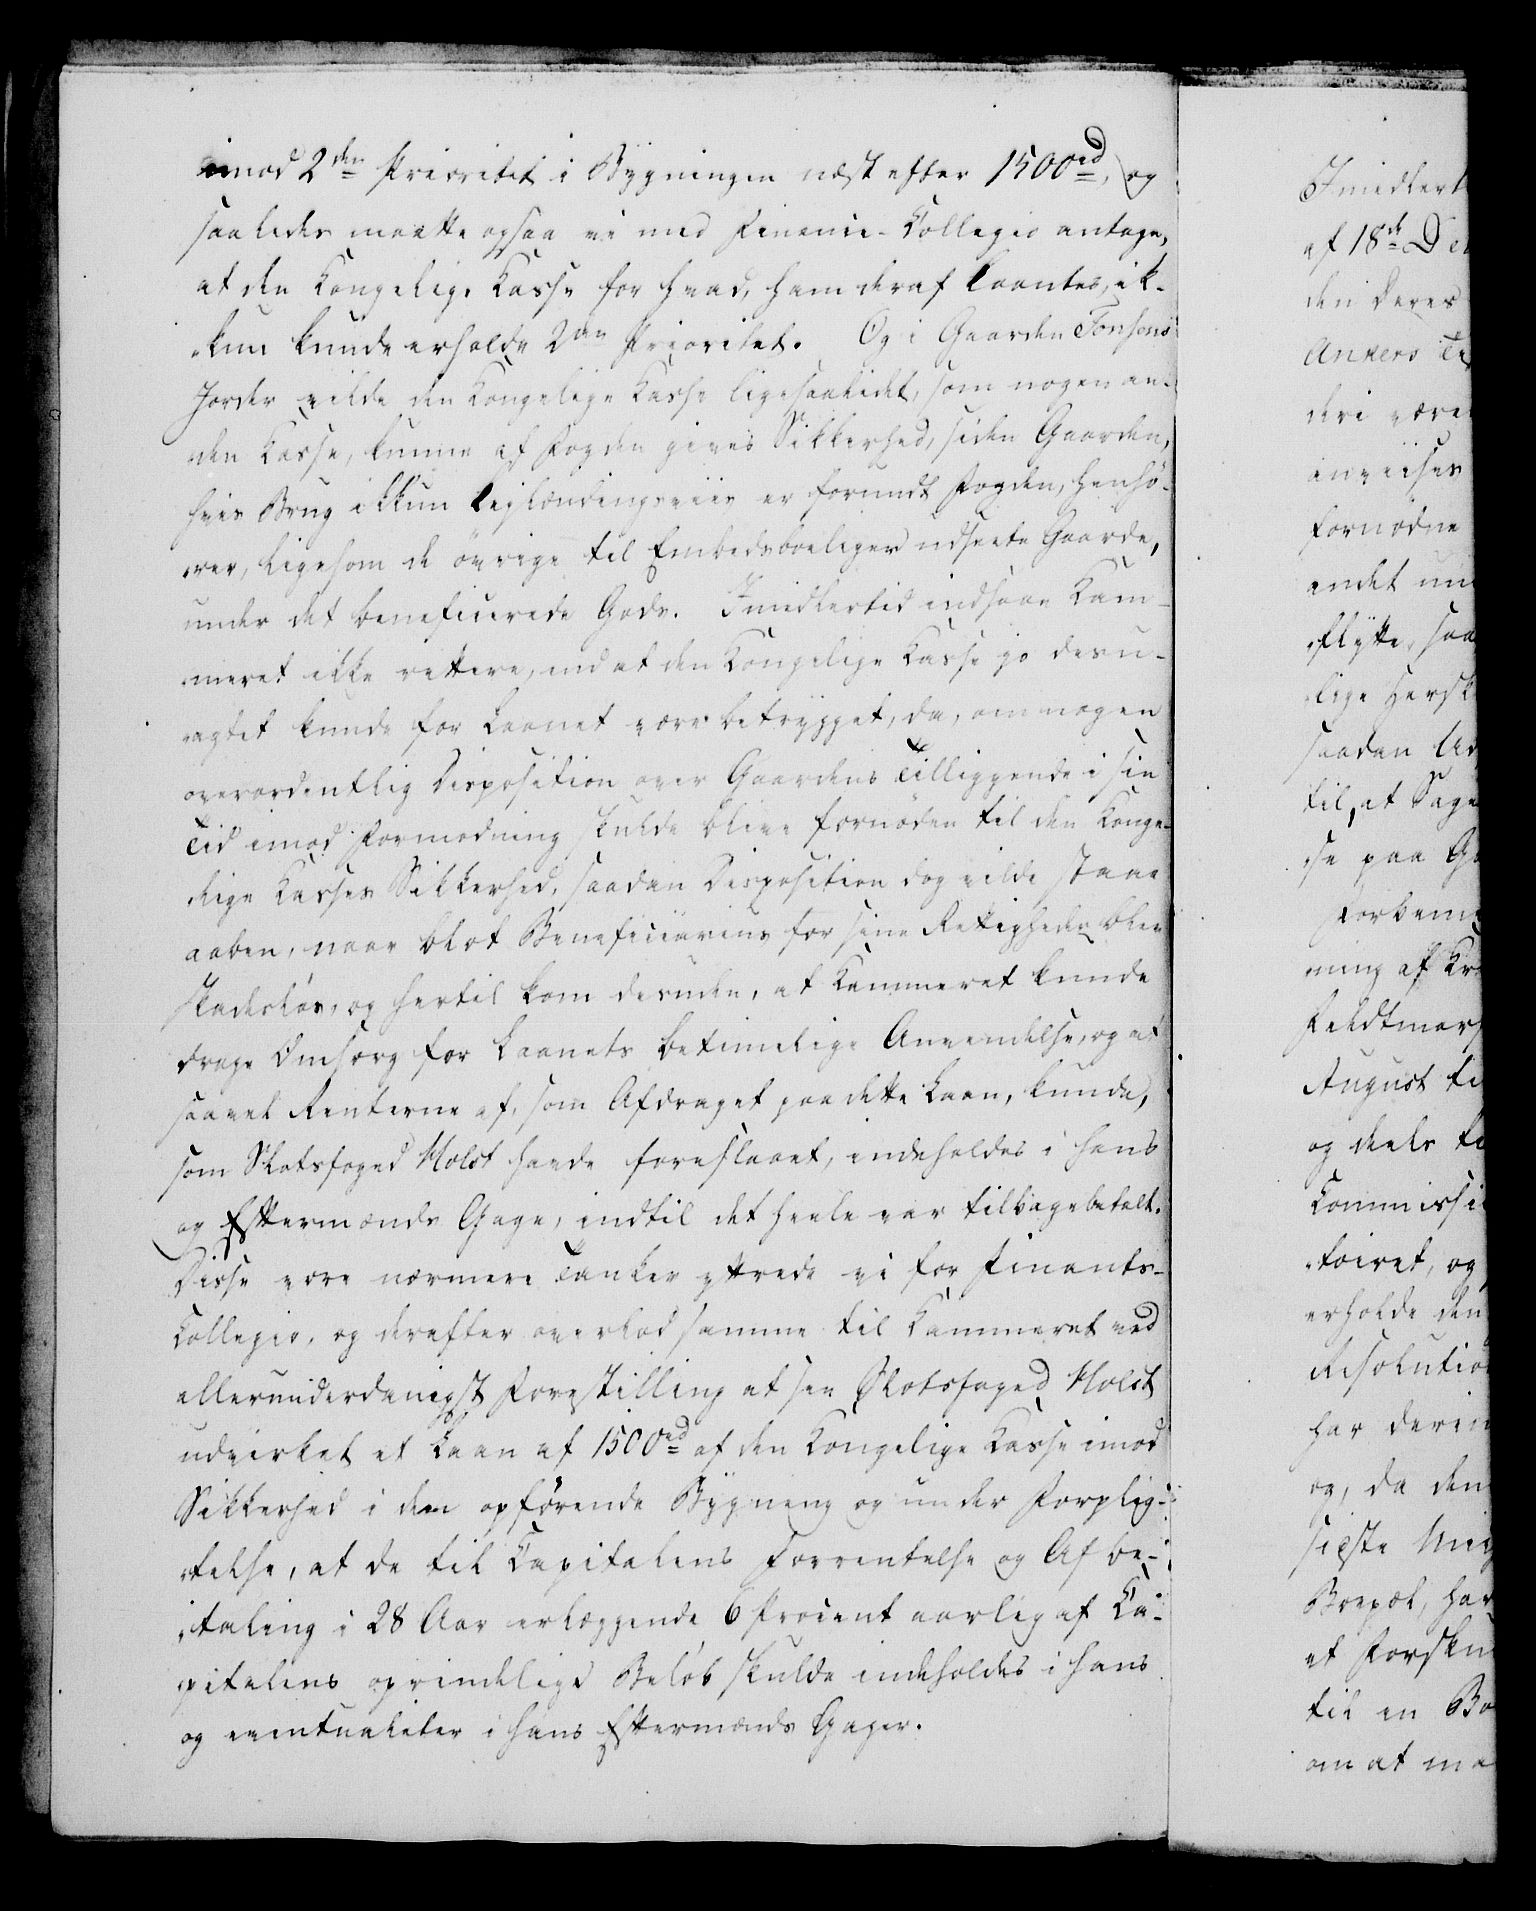 imod 2den Prioritet i Bygningen næst efter 1500rd, og
saaledes maatte ogsaa vi med Finance-Collegio antage,
at den Kongelige Kasse for hvad, ham deraf laantes, ik-
kun kunde erholde 2den Prioritet. Og i Gaarden Tonsens
Jorder vilde den Kongelige Kasse ligesaalidet, som nogen an-
den Kasse, kunne af Fogden gives Sikkerhed, siden Gaarden,
hvis Brug ikkun leylændingsviis er forundt Fogden, henhö-
rer, ligesom de övrige til Embedsboeliger udseete Gaarde,
under det beneficerede Gods. Imidlertid indsaae Kam-
meret ikke rettere, end at den Kongelige Kasse jo desu-
agtet kunde for Laanet være betrygget, da, om nogen
overordentlig Disposition over Gaardens Tilliggende i sin
Tid imod Formodning skulde blive fornöden til den Konge-
lige Kasses Sikkerhed, saadan Disposition dog vilde staae
aaben, naar blot Beneficiarius for sine Rettigheder blev
skadeslös, og hertil kom desuden, at Kammeret kunde
drage Omsorg for Laanets betimelige Anvendelse, og at
saavel Renterne af, som Afdraget paa dette Laan, kunde,
som Slotsfoged Holst havde foreslaaet, indeholdes i hans
og Eftermands Gage, indtil det heele var tilbagebetalt.
Disse vore nærmere Tanker yttrede vi for Finants-
Collegio, og derefter overlod samme til Kammeret ved
allerunderdanigst Forestilling at see Slotsfoged Holst
udvirket et Laan af 1500rd af den Kongelige Kasse imod
Sikkerhed i den opförende Bygning og under Forplig-
telse, at de til Capitalens Forrentelse og Afbe-
taling i 28 Aar erlæggende 6 Procent aarlig af Ca-
pitalens oprindelige Belöb skulde indeholdes i hans
og eventualiter i hans Eftermands Gager.
Imidlert
af 18de De
den deres
Ankers
deri være
anviises
fornödne
andet
flytte, saa
lige Hersk
saadan
til, at Sage
se paa G
forbem
ning af Kr
Feldtmars
August ti
og deels t
Commissi
toiret, og
erholde den
Resolution
har deri
og, da den
sidste
har
et Forsk
til en Bo
om at m